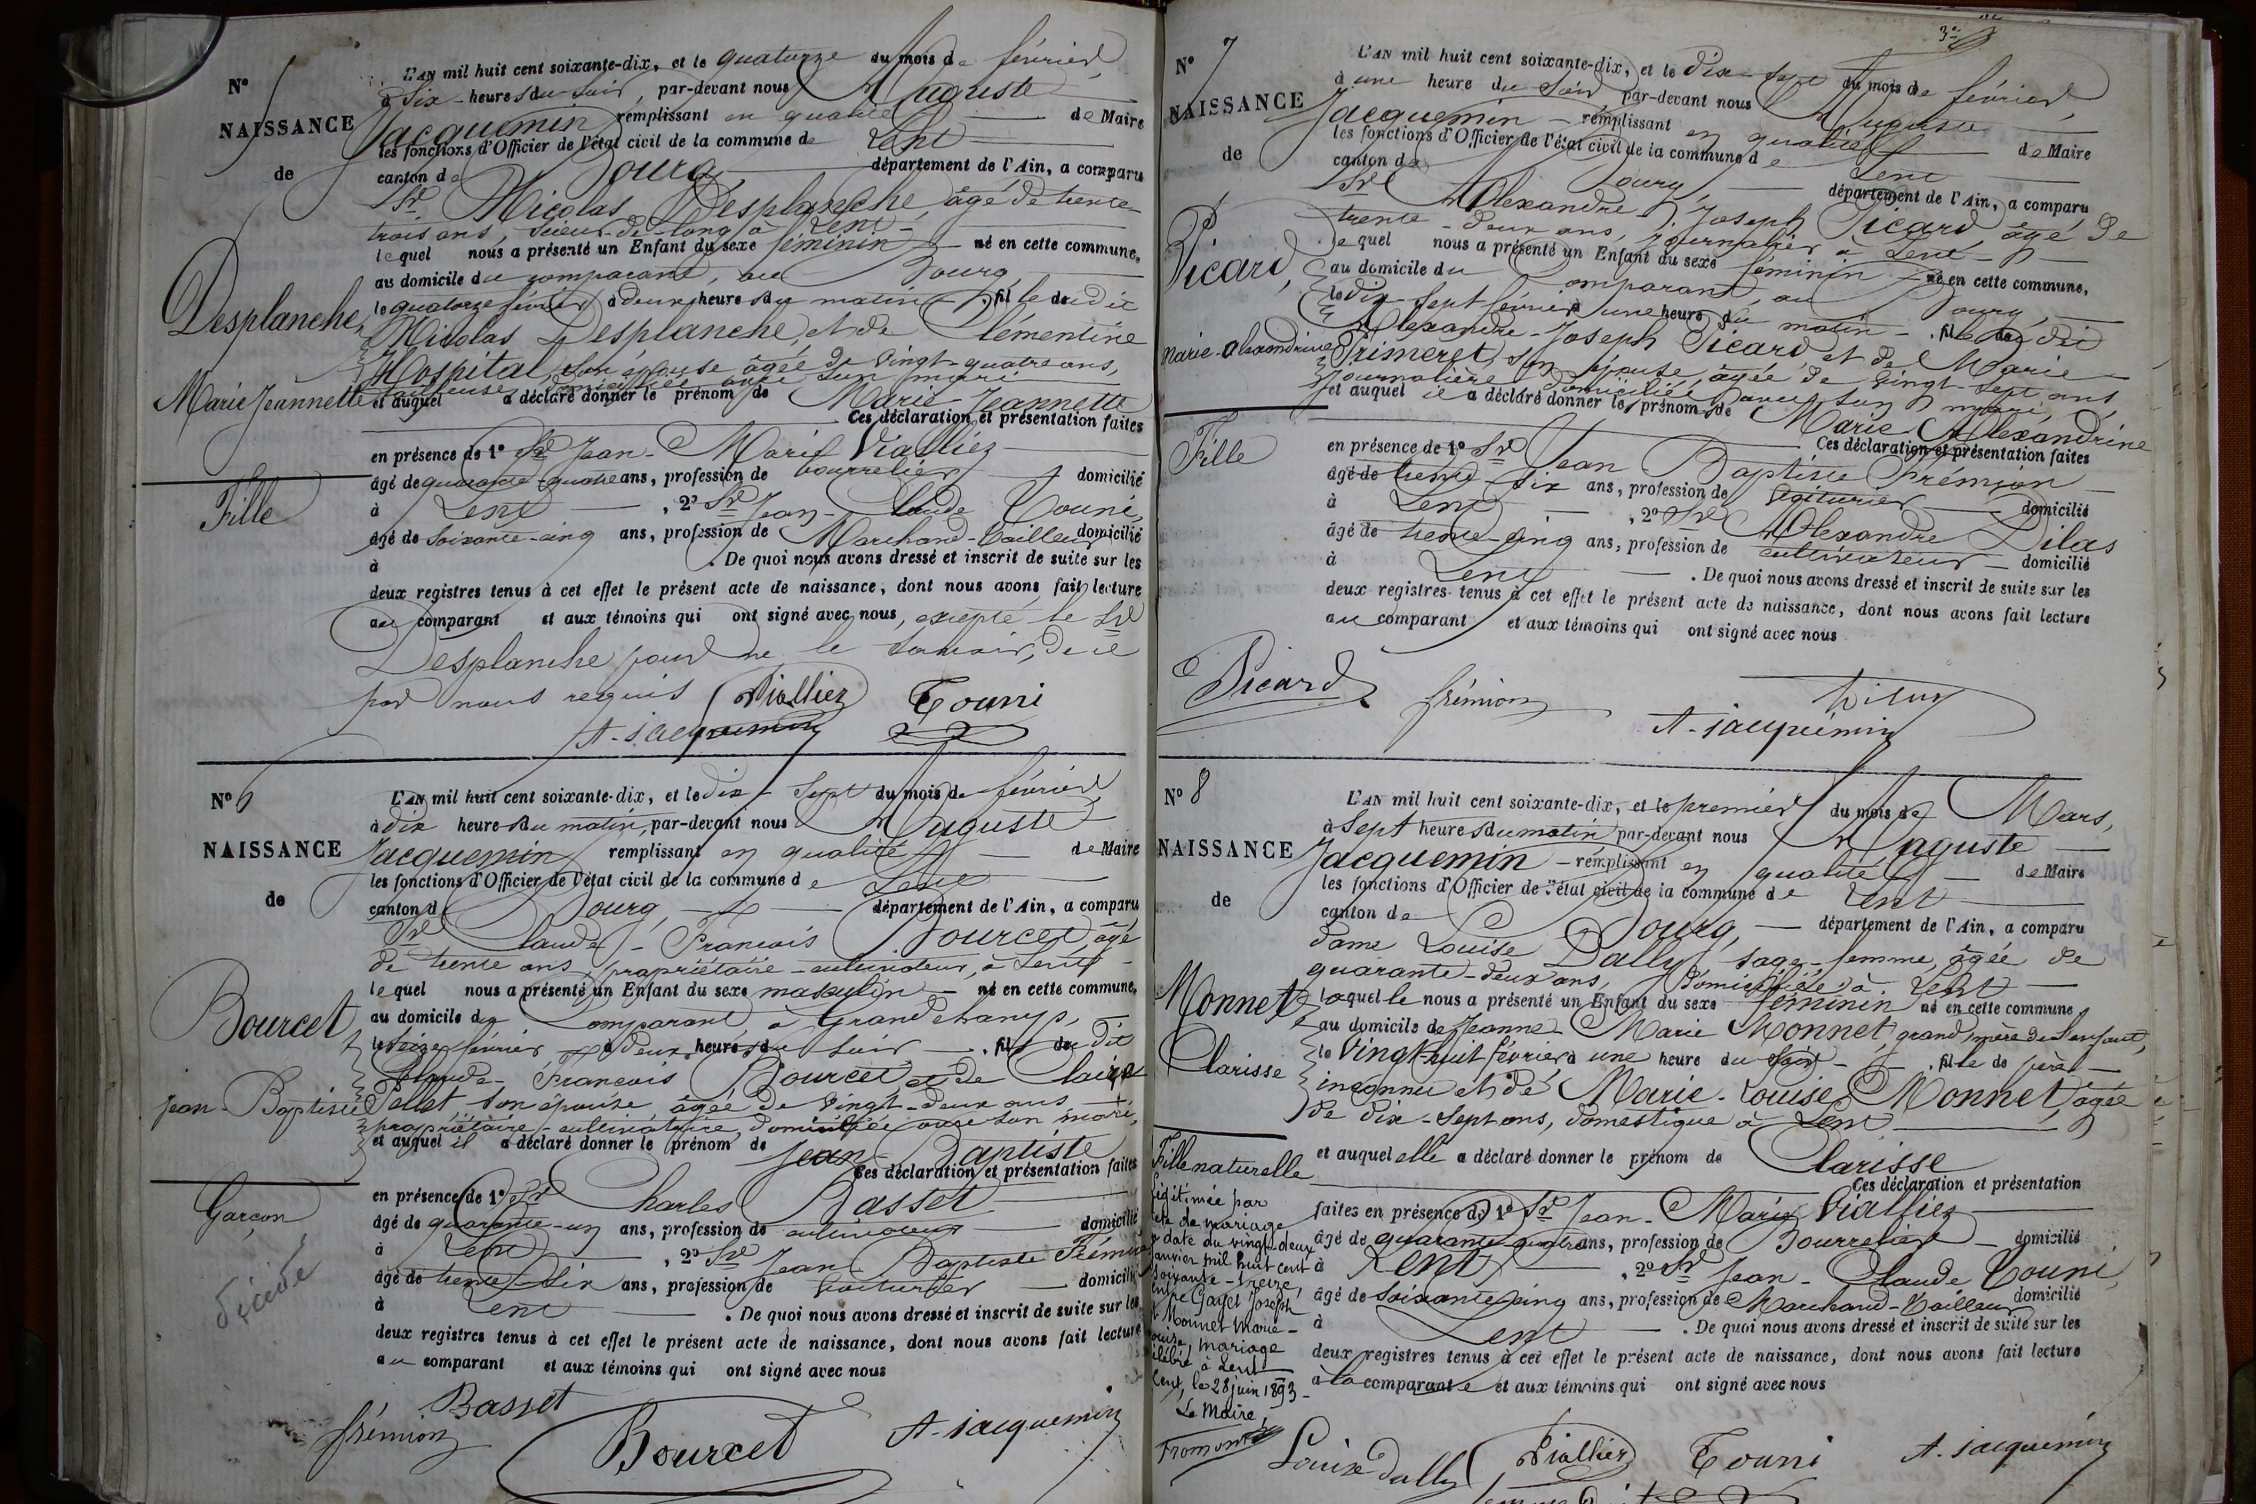 N° 5
NAISSANCE
de
Desplanche,
Marie Jeannette
Fille
L'AN mil huit cent soixante-dix, et le quatorze du mois de février,
à six heures du soir, par-devant nous Auguste
Jacquemin remplissant en qualité de Maire
les fonctions d'Officier de l'état civil de la commune de Lent
canton de Bourg, département de l'Ain, a comparu
Sr Nicolas Desplanche, âgé de trente-
trois ans, scieur-de-long à Lent
lequel nous a présenté un Enfant du sexe féminin né en cette commune,
au domicile du comparant, au Bourg,
le quatorze février à deux heures du matin, fille de dit
Nicolas Desplanche, et de Clémentine
Hospital, son épouse âgée de vingt-quatre ans,
domiciliée avec son mari
et auquel a déclaré donner le prénom de Marie Jeannette
Ces déclaration et présentation faites
en présence de 1° Sr Jean-Marie Vialliez
âgé de quarante-quatre ans, profession de bourrelier domicilié
à Lent, 2° Sr Jean-Claude Touni,
âgé de soixante-cinq ans, profession de Marchand-Tailleur domicilié
à . De quoi nous avons dressé et inscrit de suite sur les
deux registres tenus à cet effet le présent acte de naissance, dont nous avons fait lecture
au comparant et aux témoins qui ont signé avec nous, excepté le Sr
Desplanche pour ne le savoir, de ce
par nous requis Vialliez Touni
A. Jacquemin
N° 6
NAISSANCE
de
Bourcet
Jean-Baptiste
Garçon
décédé
L'AN mil huit cent soixante-dix, et le dix-sept du mois de février
à dix heures du matin, par-devant nous Auguste
Jacquemin remplissant en qualité de Maire
les fonctions d'Officier de l'état civil de la commune de Lent
canton de Bourg, département de l'Ain, a comparu
Sr Claude-François Bourcet, âgé
de trente ans, propriétaire-cultivateur, à Lent,
lequel nous a présenté un Enfant du sexe masculin né en cette commune,
au domicile du Comparant, à Grand champ,
le seize février à deux heures du soir, fils du dit
Claude-François Bourcet et de Claire
Pellet, son épouse âgée de vingt-deux ans
propriétaire-cultivatrice, domiciliée avec son mari,
et auquel il a déclaré donner le prénom de Jean-Baptiste
Ces déclaration et présentation faites
en présence de 1° Sr Charles Basset
âgé de quarante-un ans, profession de cultivateur domicilié
à Lent, 2° Sr Jean Baptiste Frémion
âgé de trente-six ans, profession de voiturier domicilié
à Lent . De quoi nous avons dressé et inscrit de suite sur les
deux registres tenus à cet effet le présent acte de naissance, dont nous avons fait lecture
au comparant et aux témoins qui ont signé avec nous
Basset
frémion Bourcet A. Jacquemin
N° 7
NAISSANCE
de
Picard,
Marie-Alexandrine
Fille
L'AN mil huit cent soixante-dix, et le dix-sept du mois de février,
à une heure du soir par-devant nous Auguste
Jacquemin remplissant en qualité de Maire
les fonctions d'Officier de l'état civil de la commune de Lent
canton de Bourg, département de l'Ain, a comparu
Sr Alexandre Joseph Picard, âgé de
trente-deux ans, journalier à Lent
lequel nous a présenté un Enfant du sexe féminin né en cette commune,
au domicile du Comparant, au Bourg,
le dix-sept février à une heure du matin, fille du dit
Alexandre-Joseph Picard, et de Marie
Trimeret, son épouse, âgée de vingt-sept ans,
journalière domiciliée avec son mari,
et auquel il a déclaré donner les prénoms de Marie Alexandrine
Ces déclaration et présentation faites
en présence de 1° Sr Jean Baptiste Frémion
âgé de trente-six ans, profession de voiturier domicilié
à Lent, 2° Sr Alexandre Dilas
âgé de trente-cinq ans, profession de cultivateur domicilié
à Lent . De quoi nous avons dressé et inscrit de suite sur les
deux registres tenus à cet effet le présent acte de naissance, dont nous avons fait lecture
au comparant et aux témoins qui ont signé avec nous
Picard frémion
A. Jacquemin
N° 8
NAISSANCE
de
Monnet
Clarisse
Fille naturelle
légitimée par
acte de mariage
date du vingt-deux
janvier mil huit cent
soixante-treize,
entre Gayet Joseph
et Monnet Marie-
Louise, mariage
célébré à Lent
Lent, le 28 juin 1893
Le Maire,
Fromont
L'AN mil huit cent soixante-dix, et le premier du mois de Mars,
à sept heures du matin par-devant nous Auguste
Jacquemin remplissant en qualité de Maire
les fonctions d'Officier de l'état civil de la commune de Lent
canton de Bourg, département de l'Ain, a comparu
dame Louise Dally, sage-femme, âgée de
quarante-deux ans, domiciliée à Lent
laquelle nous a présenté un Enfant du sexe féminin né en cette commune
au domicile de Jeanne-Marie Monnet, grand'mère de l'enfant,
le vingt-huit février, à une heure du soir, fille de père
inconnu et de Marie-Louise Monnet, âgée
de dix-sept ans, domestique à Lent
et auquel elle a déclaré donner le prénom de Clarisse
Ces déclaration et présentation
faites en présence de 1° Sr Jean-Marie Vialliez
âgé de quarante-quatre ans, profession de Bourrelier domicilié
à Lent, 2° Sr Jean-Claude Touni,
âgé de soixante-cinq ans, profession de Marchand-Tailleur domicilié
à Lent . De quoi nous avons dressé et inscrit de suite sur les
deux registres tenus à cet effet le présent acte de naissance, dont nous avons fait lecture
à la comparante et aux témoins qui ont signé avec nous
Louise Dally Vialliez Touni A. Jacquemin